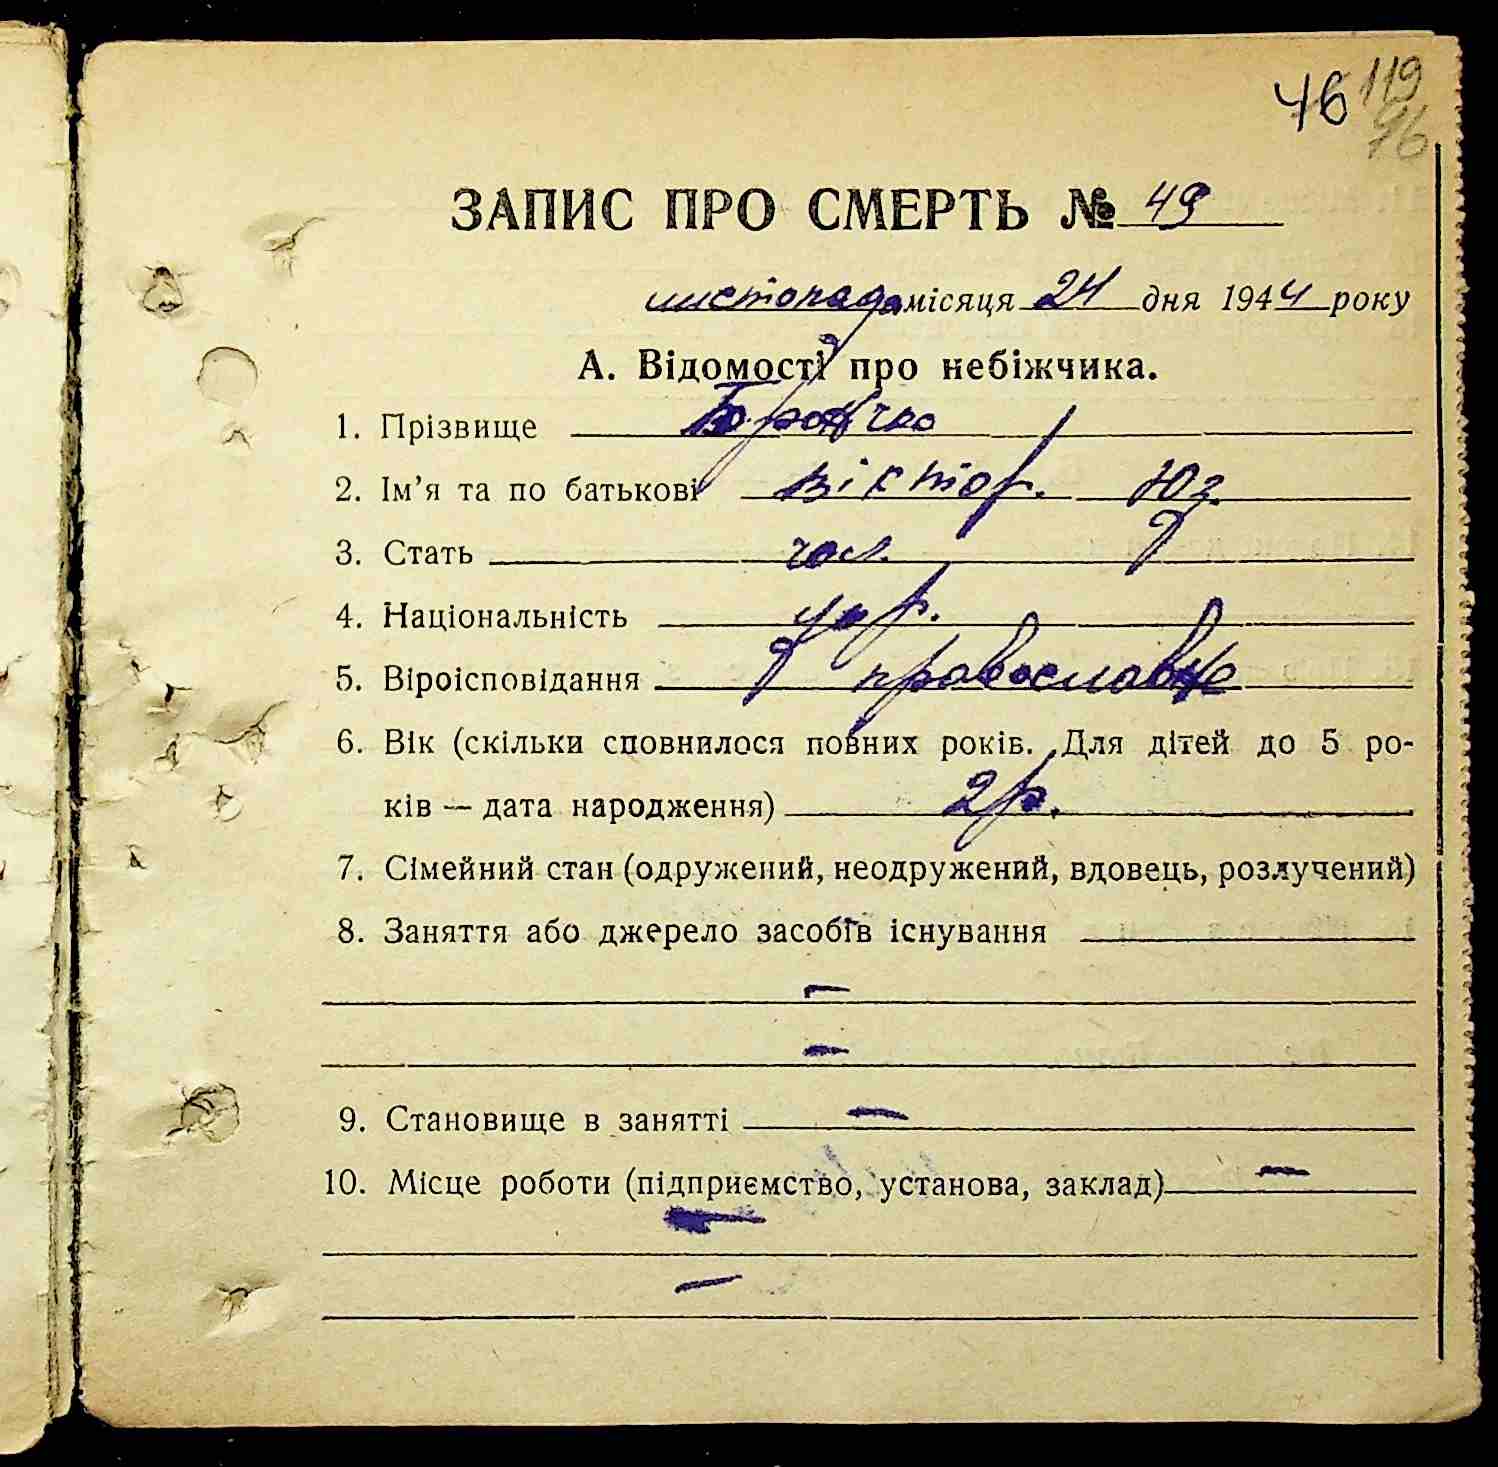 46 119
46
ЗАПИС ПРО СМЕРТЬ № 49
листопада місяця 24 дня 1944 року
А. Відомості про небіжчика.
1. Прізвище
2. Ім’я та по батькові Віктор. Юз.
3. Стать чол.
4. Національність укр.
5. Віроісповідання православне
6. Вік (скільки сповнилося повних років. Для дітей до 5 ро-
ків — дата народження) 2 р.
7. Сімейний стан (одружений, неодружений, вдовець, розлучений)
8. Заняття або джерело засобів існування
—
—
9. Становище в занятті —
10. Місце роботи (підприємство, установа, заклад) —
—
—